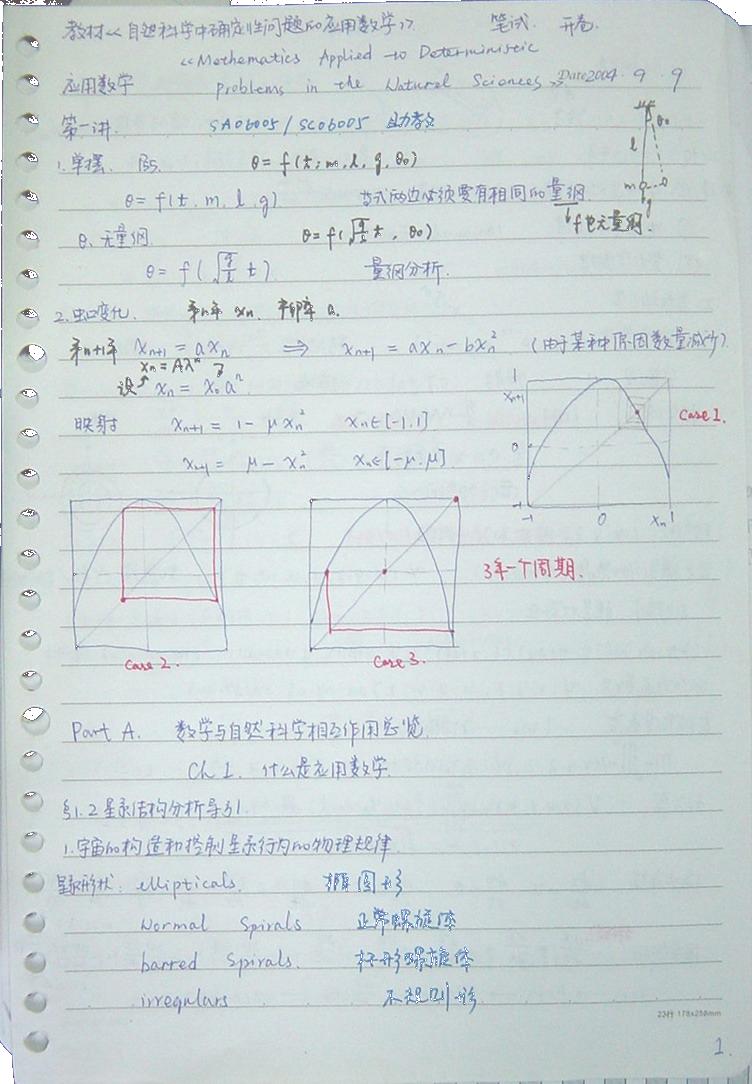 教材《自然科学中确定性问题的应用数学》. 笔试. 开卷.
《Mathematics Applied to Deterministic
应用数学 problems in the Natural Sciences》 Date 2004.9.9
第一讲. SA06005/SC06005 助教
1. 单摆. θ = f(t, m, l, g, θ₀)
θ = f(t, m, l, g) 等式两边必须要有相同的量纲.
θ, 无量纲 θ = f(√(g/l) t, θ₀) f也无量纲.
θ = f(√(g/l) t) 量纲分析.
θ₀
l
m
g
2. 虫口变化. 第n年 xₙ.
第n+1年 xₙ₊₁ = axₙ ⟹ xₙ₊₁ = axₙ − bxₙ² (由于某种原因数量减少)
xₙ = Aλⁿ
设 xₙ = x₀aⁿ
映射 xₙ₊₁ = 1 − μxₙ² xₙ∈[-1,1]
xₙ₊₁ = μ − xₙ² xₙ∈[-μ, μ]
1
xₙ₊₁
0
-1
-1 0 xₙ 1
Case 1.
3年一个周期.
Case 2. Case 3.
Part A. 数学与自然科学相互作用总览.
Ch 1. 什么是应用数学.
§1.2 星系结构分析导引.
1. 宇宙的构造和控制星系行为的物理规律
星系形状: ellipticals. 椭圆形
Normal Spirals 正常螺旋体
barred Spirals. 杆形螺旋体
irregulars 不规则形
23行 178x250mm
1.